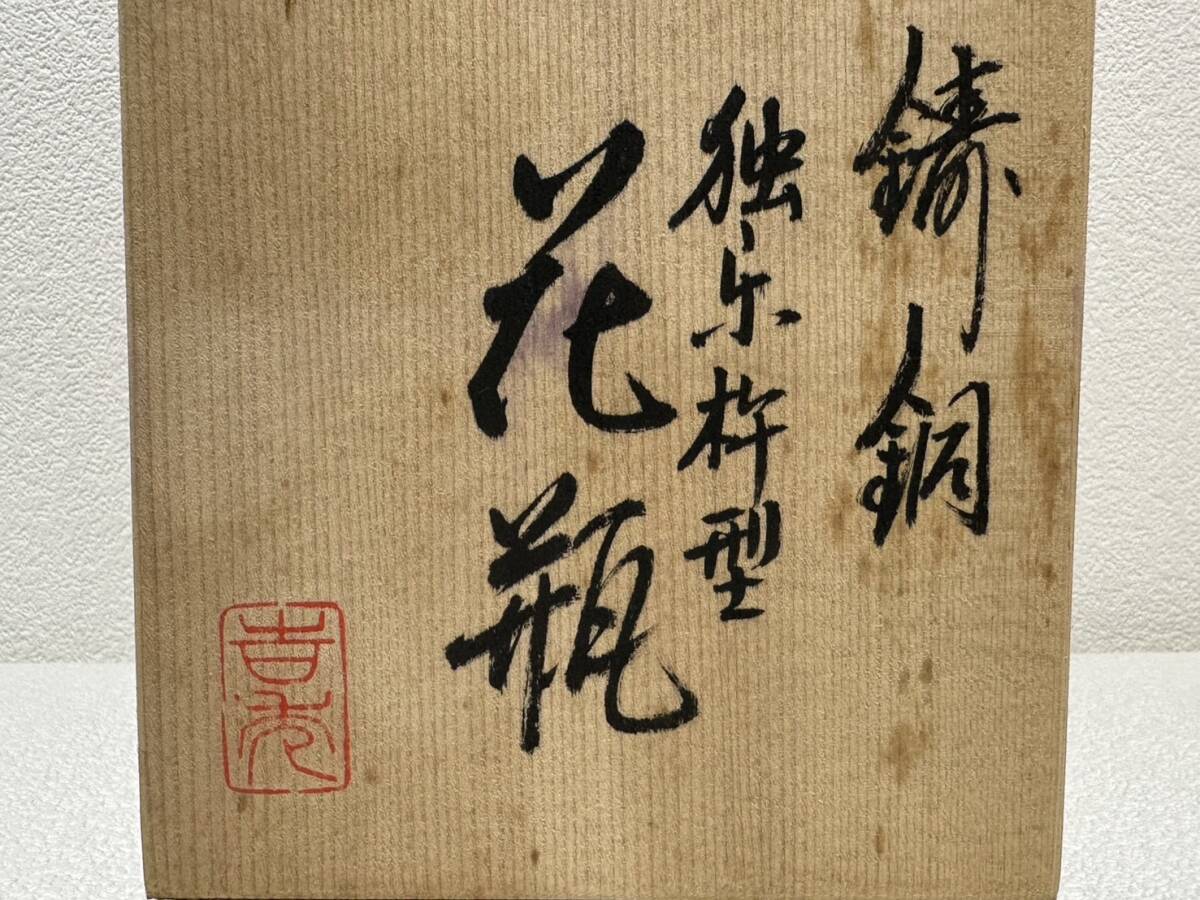 鋳銅
独楽杵型
花瓶
吉光